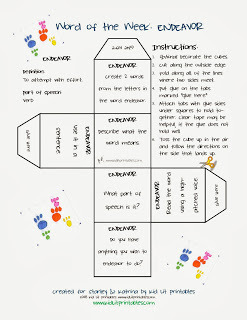 Word of the Week: ENDEAVOR
ENDEAVOR
Definition:
To attempt with effort.
part of speech
verb
glue here
ENDEAVOR
create 2 words
from the letters in
the word endeavor
Instructions:
Optional: decorate the cubes
Cut along the outside edge
Fold along all of the lines
where two sides meet.
Put glue on the tabs
marked "glue here"
Attach tabs with glue sides
under squares to hold to-
gether. Clear tape may be
helpful, if the glue does not
hold well.
Toss the cube up in the air
and follow the directions on
the side that lands up.
glue here
ENDEAVOR
Use it in a
sentence
ENDEAVOR
describe what the
word means.
ENDEAVOR
What part of
speech is it?
ENDEAVOR
Read the word
using a high
pitched voice
glue here
ENDEAVOR
Do you have
anything you wish to
endeavor to do?
created for Charley & Katrina by Kid Lit Printables
www.kidlitprintables.com